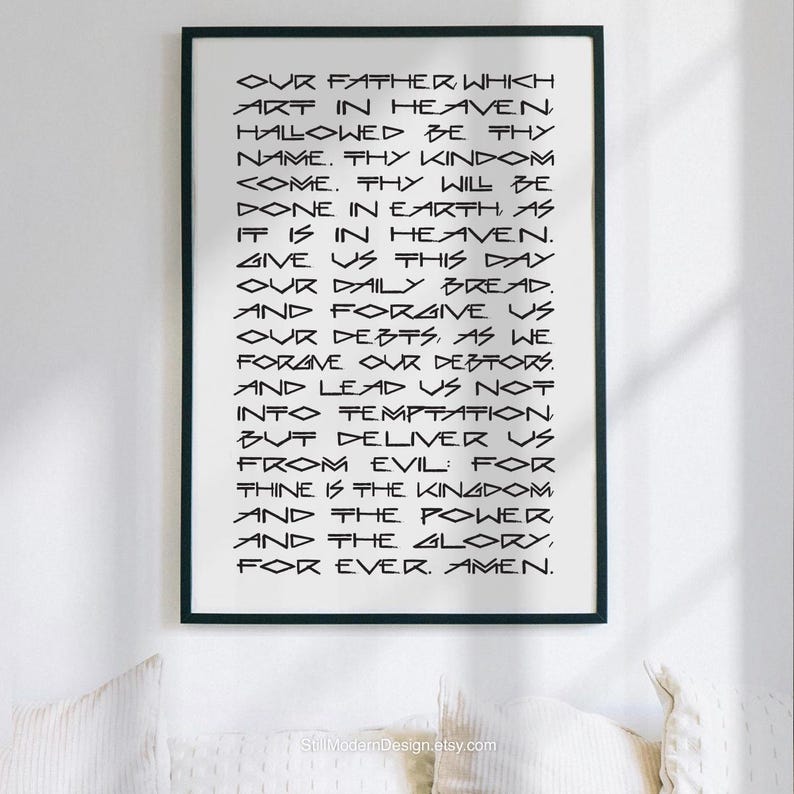 OUR FATHER, WHICH
ART IN HEAVEN,
HALLOWED BE THY
NAME. THY KINDOM
COME. THY WILL BE
DONE IN EARTH, AS
IT IS IN HEAVEN.
GIVE US THIS DAY
OUR DAILY BREAD.
AND FORGIVE US
OUR DEBTS, AS WE
FORGIVE OUR DEBTORS.
AND LEAD US NOT
INTO TEMPTATION,
BUT DELIVER US
FROM EVIL: FOR
THINE IS THE KINGDOM,
AND THE POWER,
AND THE GLORY,
FOR EVER. AMEN.
StillModernDesign.etsy.com